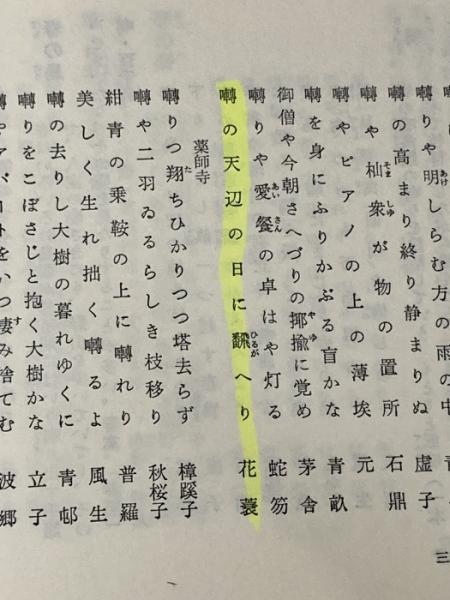 りや明しらむ方の雨の中 青
囀の高まり終り静まりぬ 虚子
囀や杣衆が物の置所 石鼎
囀やピアノの上の薄埃 元
囀を身にふりかぶる盲かな 青畝
御僧や今朝さへづりの揶揄に覚め 茅舎
囀りや愛餐の卓はや灯る 蛇笏
囀の天辺の日に飜へり 花蓑
薬師寺
囀りつ翔ちひかりつつ塔去らず 樟蹊子
囀や二羽ゐるらしき枝移り 秋桜子
紺青の乗鞍の上に囀れり 普羅
美しく生れ拙く囀るよ 風生
囀の去りし大樹の暮れゆくに 青邨
囀りをこぼさじと抱く大樹かな 立子
囀やアパートをいつ棲み捨てむ 波郷
三